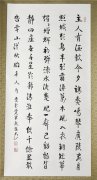 主人有酒歡今夕請奏鳴琴廣陵客月
照城頭烏半飛霜淒萬木風入衣銅
鑪華燭燭增輝初彈淥水後楚妃一聲已動物皆
靜四座無言星欲稀清淮奉使千餘里敢
告雲山從此始